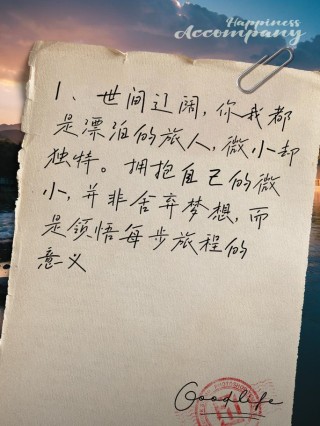 Happiness
Accompany
1、世间辽阔,你我都
是漂泊的旅人,微小却
独特。拥抱自己的微
小,并非舍弃梦想,而
是领悟每步旅程的
意义
Goodlife